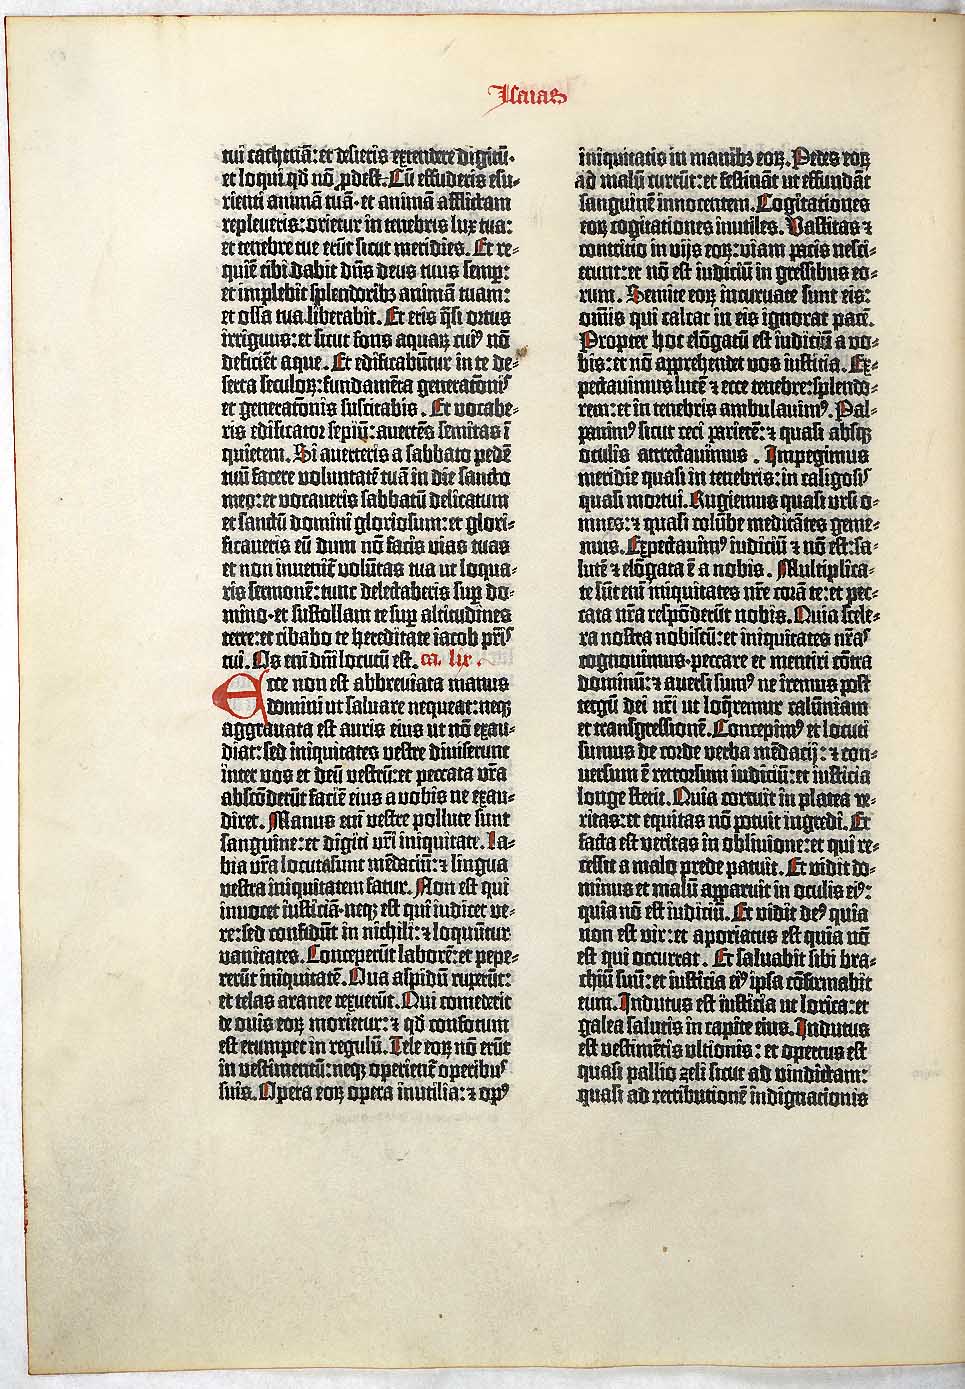 Isaias
tui cathenā: et desieris extendere digitū·
et loqui qđ nō ꝓdest. Cū effuderis esu-
rienti animā tuā· et animā afflictam
repleveris: orietur in tenebris lux tua:
et tenebre tue erūt sicut meridies. Et re-
quiē tibi dabit dn̄s deus tuus semꝑ:
et implebit splendoribꝫ animā tuam:
et ossa tua liberabit. Et eris q̄si ortus
irriguus: et sicut fons aquaꝝ cuiꝰ nō
deficiēt aque. Et edificabūtur in te de-
serta seculoꝝ: fundamēta generatōnis
et generatōnis suscitabis. Et vocabe-
ris edificator sepiū: avertēs semitas ī
quietem. Si averteris a sabbato pedē
tuū facere voluntatē tuā in die sancto
meo: et vocaveris sabbatū delicatum
et sanctū domini gloriosum: et glori-
ficaveris eū dum nō facis vias tuas
et non inveniēt volūtas tua ut loqua-
ris sermonē: tunc delectaberis suꝑ do-
mino· et sustollam te suꝑ altitudines
terre: et cibabo te hereditate iacob pr̄is
tui. Os eni dm̄i locutū est. ca. lix.
Ecce non est abbreviata manus
domini ut salvare nequeat: neqꝫ
aggravata est auris eius ut nō exau-
diat: sed iniquitates vestre diviserunt
inter vos et deū vestrū: et peccata vr̄a
abscōderūt faciē eius a vobis ne exau-
diret. Manus eni vestre pollute sunt
sanguine: et digiti vr̄i iniquitate. La-
bia vr̄a locuta sunt mēdaciū: ⁊ lingua
vestra iniquitatem fatur. Non est qui
invocet iusticiā· neqꝫ est qui iudicet ve-
re: sed confidūt in nichili: ⁊ loquūtur
vanitates. Conceperūt laborē: et pepe-
rerūt iniquitatē. Ova aspidū ruperūt:
et telas aranee texuerūt. Qui comederit
de ovis eoꝝ morietur: ⁊ qđ confotum
est erumpet in regulū. Tele eoꝝ nō erūt
in vestimentū: neqꝫ operientē operibus
suis. Opera eoꝝ opera inutilia: ⁊ opꝰ
iniquitatis in manibꝫ eoꝝ. Pedes eoꝝ
ad malū currūt: et festināt ut effundāt
sanguinē innocentem. Cogitationes
eoꝝ cogitationes inutiles. Vastitas ⁊
contritio in vijs eoꝝ: viam pacis nesci-
erunt: et nō est iudiciū in gressibus eo-
rum. Semite eoꝝ incurvate sunt eis:
om̄is qui calcat in eis ignorat pacē.
Propter hoc elōgatū est iudiciū a vo-
bis: et nō apprehendet vos iusticia. Ex-
pectavimus lucē ⁊ ecce tenebre: splendo-
rem: et in tenebris ambulavimꝰ. Pal-
pavimꝰ sicut ceci parietē: ⁊ quasi absqꝫ
oculis attrectavimus. Impegimus
meridie quasi in tenebris: in caligosis
quasi mortui. Rugiemus quasi ursi o-
mnes: ⁊ quasi colūbe meditātes geme-
mus. Expectavimꝰ iudiciū ⁊ nō est: sa-
lutē ⁊ elōgata ē a nobis. Multiplica-
te sūt eni iniquitates nr̄e corā te: et pec-
cata nr̄a respōderūt nobis. Quia scele-
ra nostra nobiscū: et iniquitates nr̄as
cognovimus· peccare et mentiri cōtra
dominū: ⁊ aversi sumꝰ ne iremus post
tergū dei nr̄i ut loq̄remur calūniam
et transgressionē. Concepimꝰ et locuti
sumus de corde verba mēdacij: ⁊ con-
versum ē retrorsum iudiciū: et iusticia
longe stetit. Quia corruit in platea ve-
ritas: et equitas nō potuit ingredi. Et
facta est veritas in oblivione: et qui re-
cessit a malo prede patuit. Et vidit do-
minus et malū apparuit in oculis eiꝰ:
quia nō est iudiciū. Et vidit deꝰ quia
non est vir: et aporiatus est quia nō
est qui occurrat. Et salvabit sibi bra-
chiū suū: et iusticia eiꝰ ipsa cōfirmabit
eum. Indutus est iusticia ut lorica: et
galea salutis in capite eius. Indutus
est vestimētis ultionis: et opertus est
quasi pallio zeli sicut ad vindictam:
quasi ad retributionē indignacionis